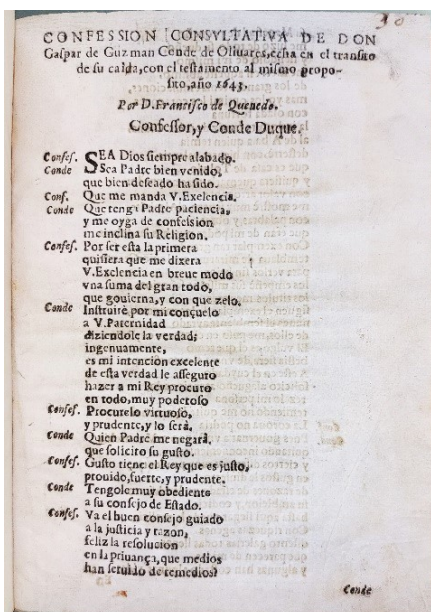 CONFESSION CONSVLTATIVA DE DON
Gaspar de Guzman Conde de Oliuares, echa en el transito
de su caida, con el testamento al mismo propo-
sito, año 1643.
Por D. Francisco de Queuedo.
Confessor, y Conde Duque.
Confes. SEA Dios siempre alabado.
Conde Sea Padre bien venido,
que bien deseado ha sido.
Conf. Que me manda V. Exelencia.
Conde Que tenga Padre paciencia,
y me oyga de confession
me inclina su Religion.
Confes. Por ser esta la primera
quisiera que me dixera
V. Exelencia en breue modo
vna suma del gran todo,
que gouierna, y con que zelo.
Conde Instruirè por mi conçuelo
a V. Paternidad
diziendole la verdad;
ingenuamente,
es mi intención excelente
de esta verdad le asseguro
hazer a mi Rey procuro
en todo, muy poderoso
Confes. Procurelo virtuoso,
y prudente, y lo serà.
Conde Quien Padre me negarà,
que solicito su gusto.
Confes. Gusto tiene el Rey que es justo,
prouido, fuerte, y prudente.
Conde Tengole muy obediente
a su consejo de Estado.
Confes. Va el buen consejo guiado
a la justicia y razon,
feliz la resolucion
en la priuança, que medios
han seruido de remedios?
Conde